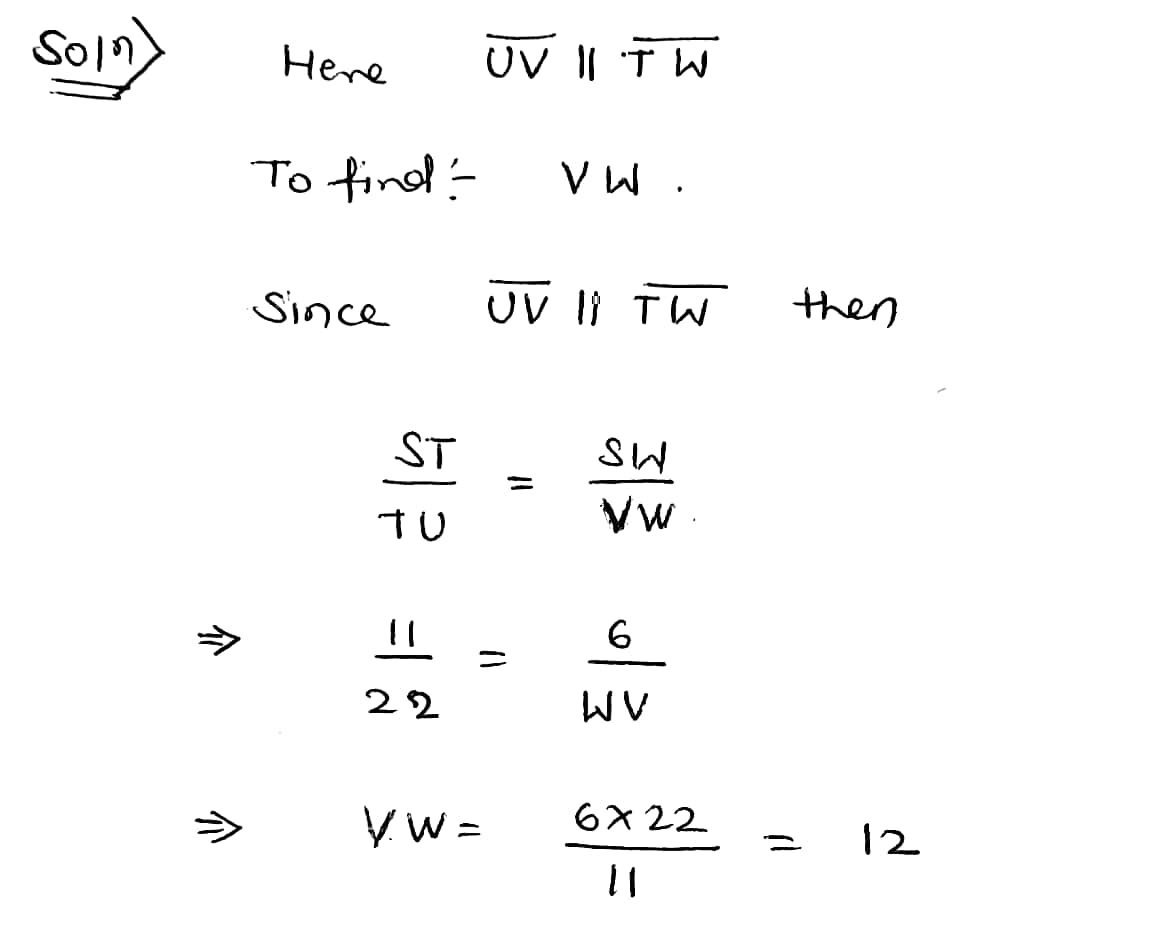 Soln) Here UV || TW
To find :- VW .
Since UV || TW then
ST / TU = SW / VW .
⇒ 11 / 22 = 6 / WV
⇒ VW = 6 × 22 / 11 = 12